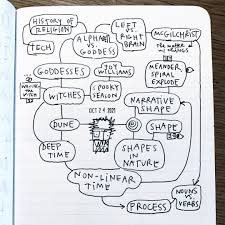 HISTORY OF
RELIGION
TECH
ALPHABET
VS.
GODDESS
LEFT
VS.
RIGHT
BRAIN
McGILCHRIST
the matter of
things
GODDESSES
JOY
WILLIAMS
MEANDER
SPIRAL
EXPLODE
WITCHES
SPOOKY
SEASON
NARRATIVE
SHAPE
OCT 24 2021
DUNE
SHAPE
DEEP
TIME
SHAPES
IN
NATURE
NON-LINEAR
TIME
NOUNS
VS.
VERBS
PROCESS